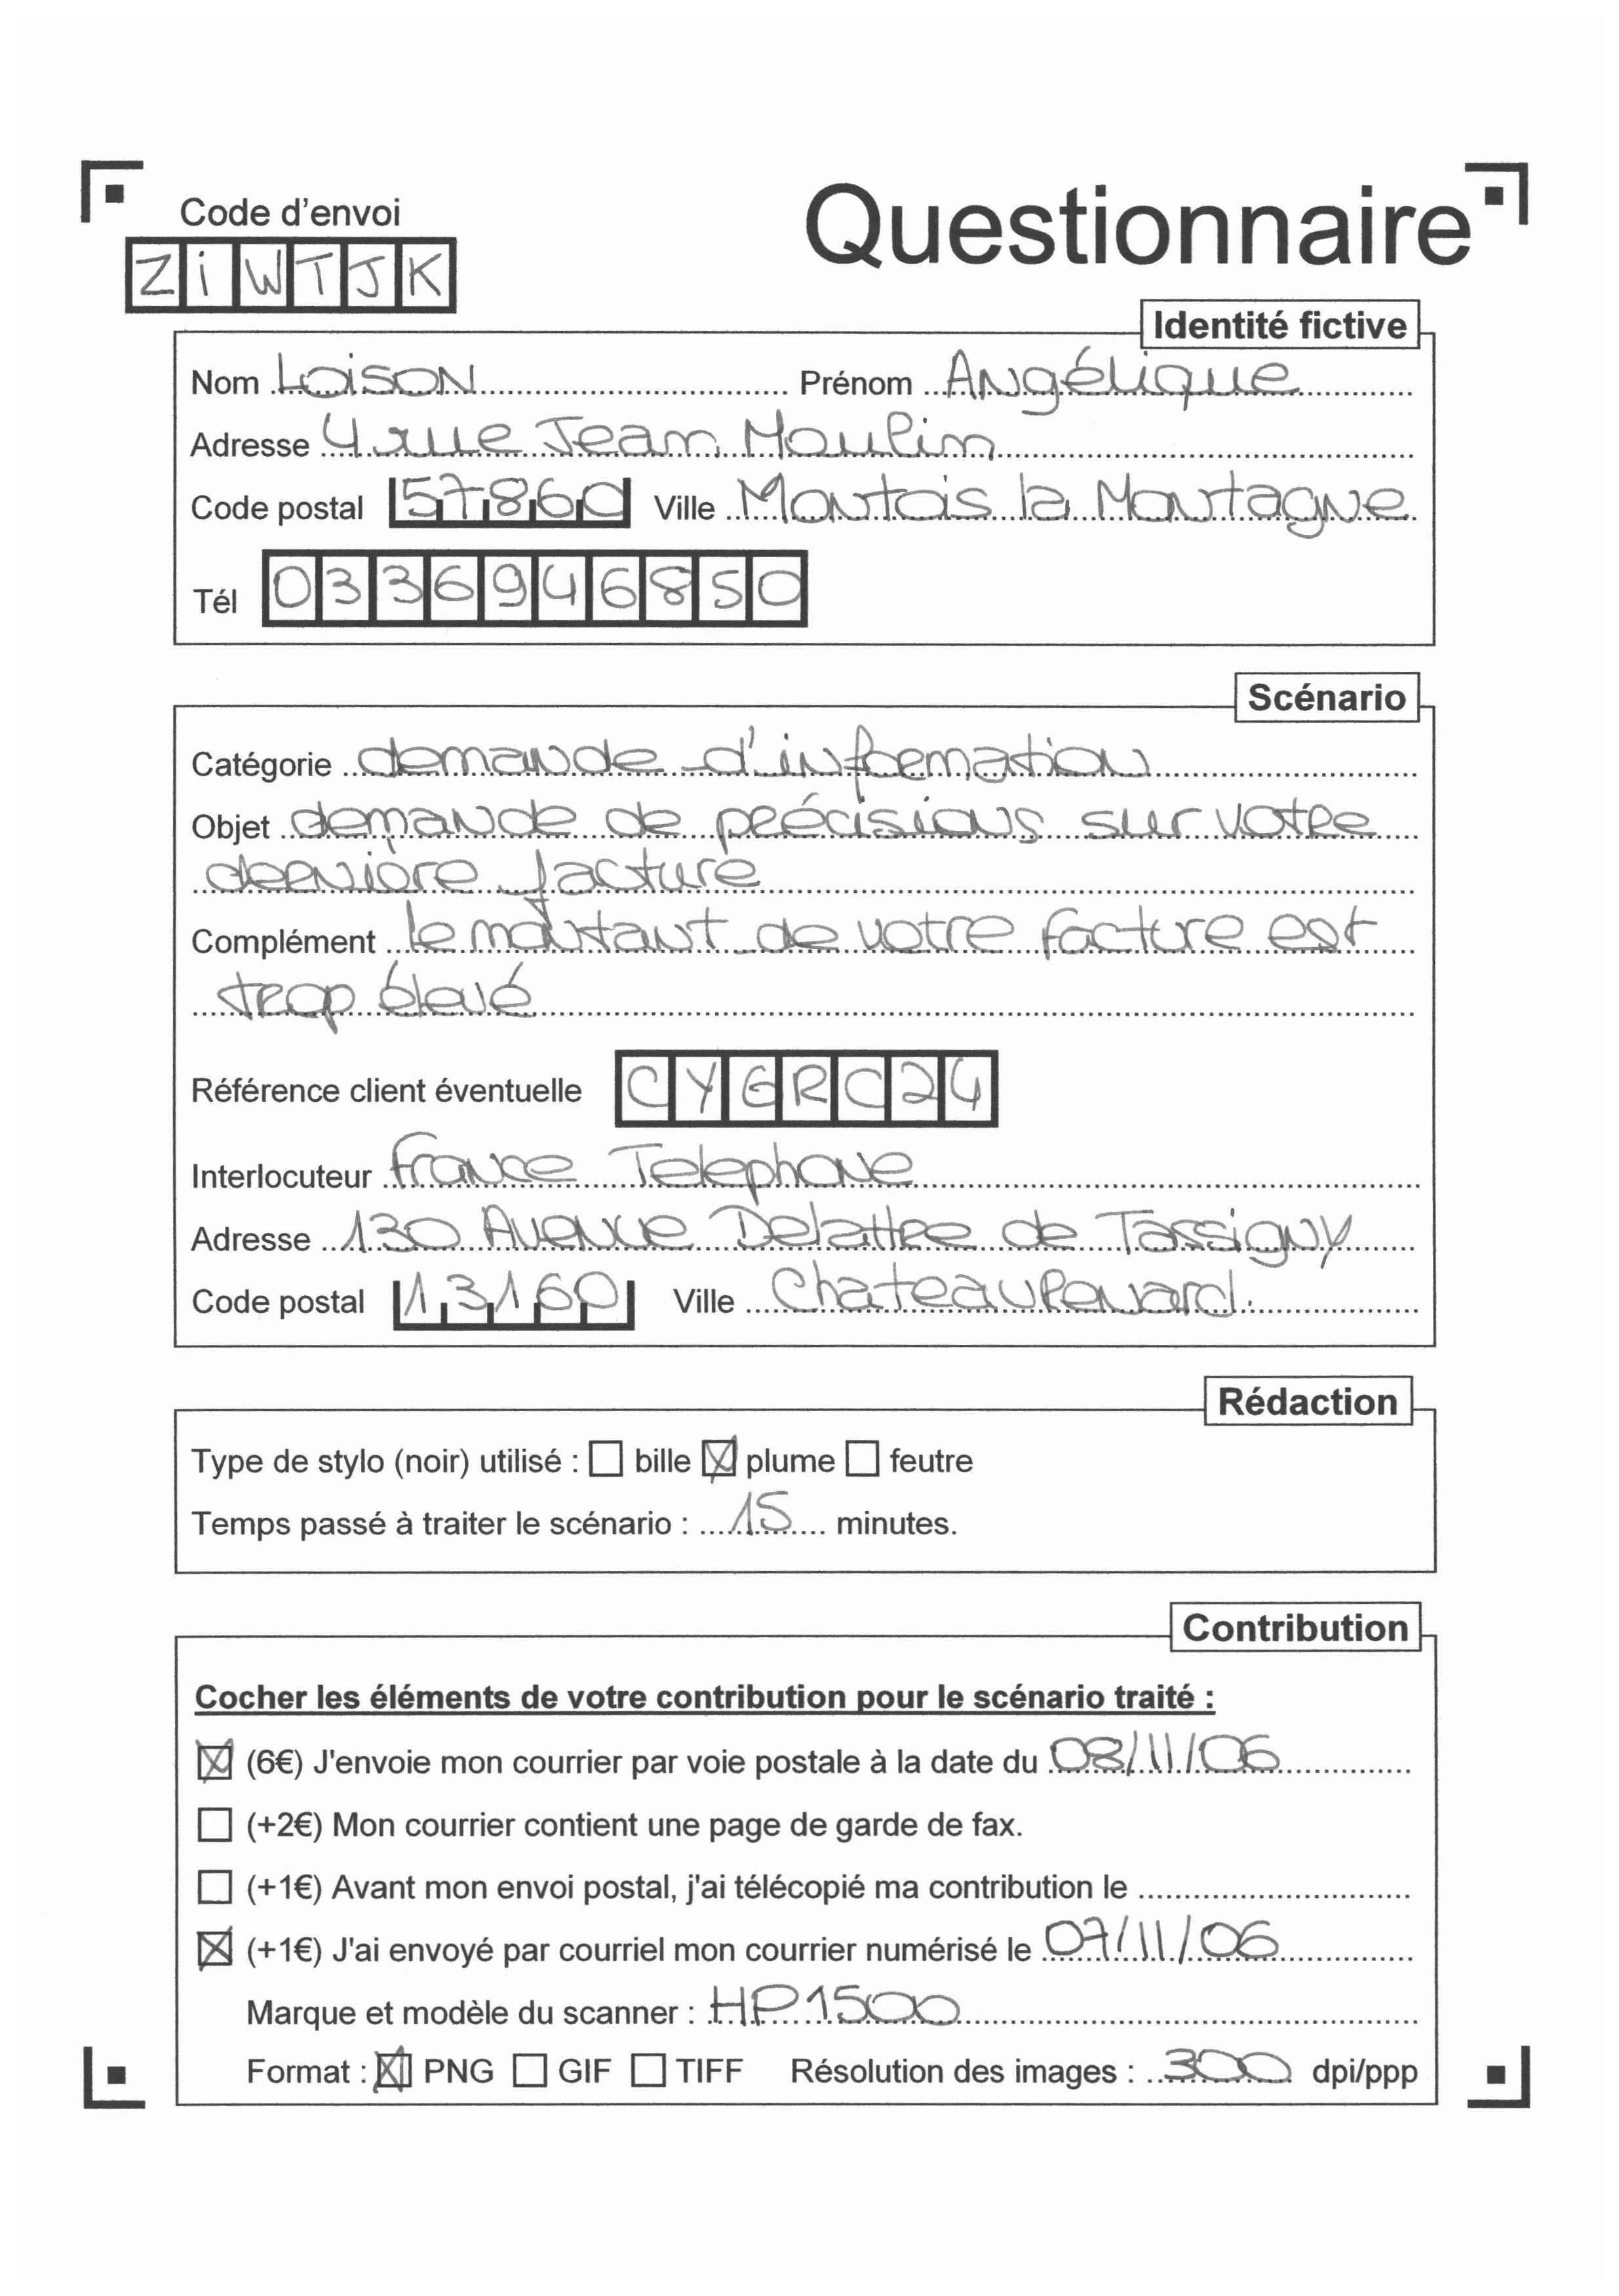 Code d'envoi
Questionnaire
ZiWTJK
Identité fictive
Nom Loison Prénom Angélique
Adresse 4 rue Jean Moulin
Code postal 57860 Ville Montois la Montagne
Tél 0336946850
Scénario
Catégorie demande d'information
Objet demande de précisions sur votre
dernière facture
Complément le montant de votre facture est
trop élevé
Référence client éventuelle CYGRC24
Interlocuteur France Telephone
Adresse 130 Avenue Delattre de Tassigny
Code postal 13160 Ville ChateauRenard.
Rédaction
Type de stylo (noir) utilisé : ☐ bille ☒ plume ☐ feutre
Temps passé à traiter le scénario : 15 minutes.
Contribution
Cocher les éléments de votre contribution pour le scénario traité :
☒ (6€) J'envoie mon courrier par voie postale à la date du 08/11/06
☐ (+2€) Mon courrier contient une page de garde de fax.
☐ (+1€) Avant mon envoi postal, j'ai télécopié ma contribution le
☒ (+1€) J'ai envoyé par courriel mon courrier numérisé le 07/11/06
Marque et modèle du scanner : HP1500
Format : ☒ PNG ☐ GIF ☐ TIFF Résolution des images : 300 dpi/ppp